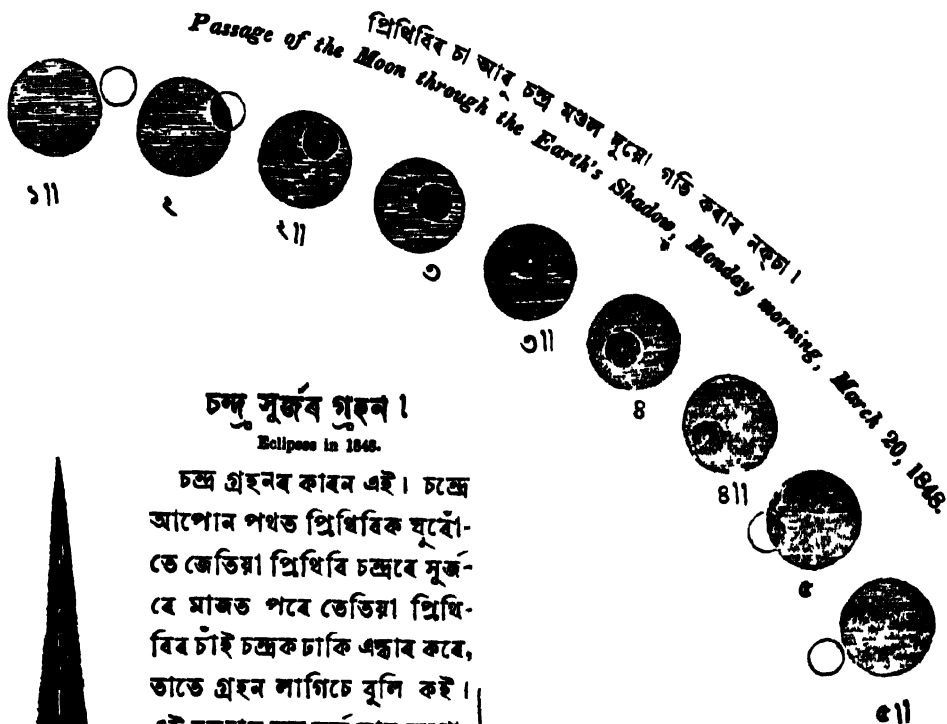 প্ৰিথিবিৰ চা আৰু চন্দ্ৰ মণ্ডল ঘুৰো গতি কৰাৰ নক্চা।
Passage of the Moon through the Earth's Shadow, Monday morning, March 20, 1848.
১॥
২
২॥
৩
৩॥
৪
৪॥
৫
৫॥
চন্দ্ৰ সুৰ্জৰ গ্ৰহন।
Eclipses in 1848.
চন্দ্ৰ গ্ৰহনৰ কাৰন এই। চন্দ্ৰে
আপোন পথত প্ৰিথিবিক ঘুৰোঁ-
তে জেতিয়া প্ৰিথিবি চন্দ্ৰৰে সুৰ্জ-
ৰে মাজত পৰে তেতিয়া প্ৰিথি-
বিৰ চাঁই চন্দ্ৰক ঢাকি এন্ধাৰ কৰে,
তাতে গ্ৰহন লাগিচে বুলি কই।